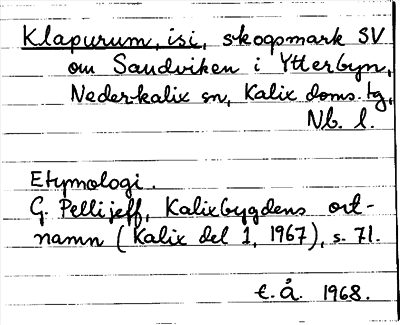 Klapurum, isi, skogsmark SV
om Sandviken i Ytterbyn,
Nederkalix sn, Kalix doms. tg,
Nb. l.
Etymologi.
G. Pellijeff, Kalixbygdens ort-
namn (Kalix del 1, 1967), s. 71.
t.å. 1968.